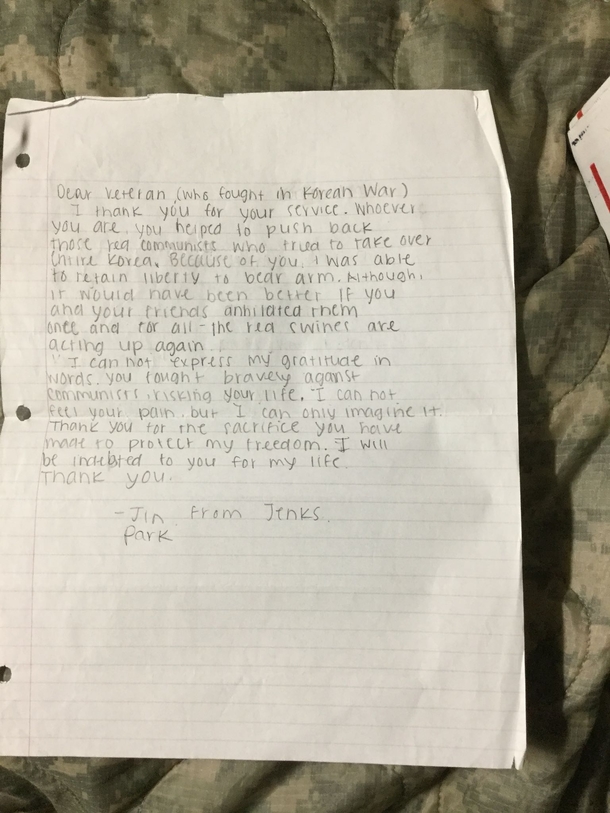 Dear Veteran, (who fought in Korean War)
I thank you for your service. Whoever
you are, you helped to push back
those red communists who tried to take over
entire Korea. Because of you, I was able
to retain liberty to bear arm. Although,
it would have been better if you
and your friends anhilated them
once and for all - the red swines are
acting up again.
I can not express my gratitude in
words. you fought bravely aganst
communists, risking your life. I can not
feel your pain, but I can only imagine it.
Thank you for the sacrifice you have
made to protect my freedom. I will
be indebted to you for my life.
Thank you.
- Jin from Jenks.
Park